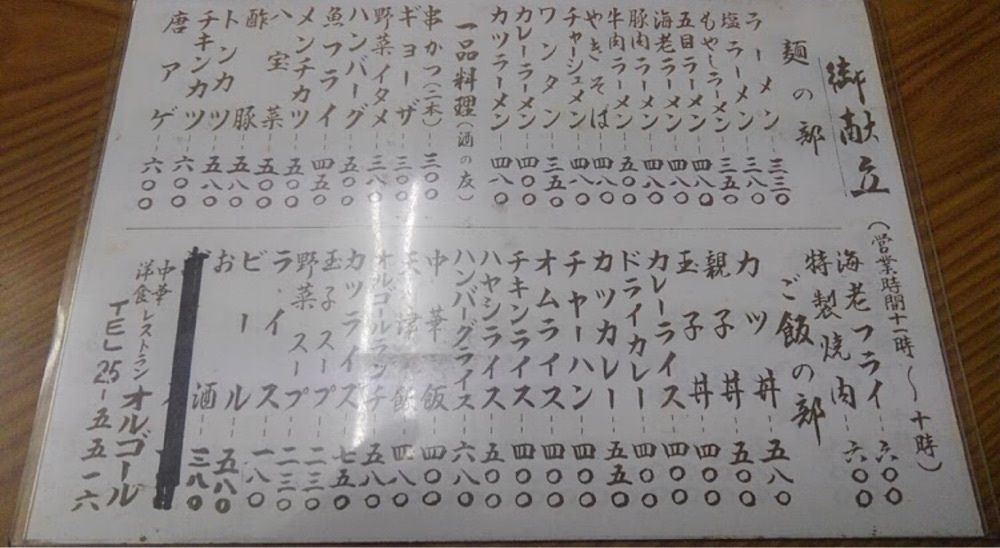 御献立
(営業時間十一時〜十時)
麺の部
ラーメン 三三〇
塩ラーメン 三八〇
もやしラーメン 三五〇
五目ラーメン 四八〇
海老ラーメン 四八〇
豚肉ラーメン 四八〇
牛肉ラーメン 五〇〇
やきそば 四八〇
チャーシュメン 四八〇
ワンタン 三五〇
カレーラーメン 四〇〇
カツラーメン 四八〇
一品料理(酒の友)
串かつ(二本) 三〇〇
ギョーザ 三〇〇
野菜イタメ 三八〇
ハンバーグ 五〇〇
魚フライ 四五〇
メンチカツ 五〇〇
八宝菜 五〇〇
酢豚 五八〇
トンカツ 五八〇
チキンカツ 六〇〇
唐アゲ 六〇〇
海老フライ 六〇〇
特製焼肉 六〇〇
ご飯の部
カツ丼 五八〇
親子丼 五〇〇
玉子丼 四〇〇
カレーライス 四〇〇
ドライカレー 四〇〇
カツカレー 五五〇
チャーハン 四〇〇
オムライス 四〇〇
チキンライス 四〇〇
ハヤシライス 五〇〇
ハンバーグライス 六八〇
中華飯 四〇〇
天津飯 四八〇
オルゴールランチ 五八〇
カツライス 七五〇
玉子スープ 二三〇
野菜スープ 二三〇
ライス 一八〇
ビール 五八〇
お酒 三八〇
中華
洋食 レストラン オルゴール
TEL 25-五五一六